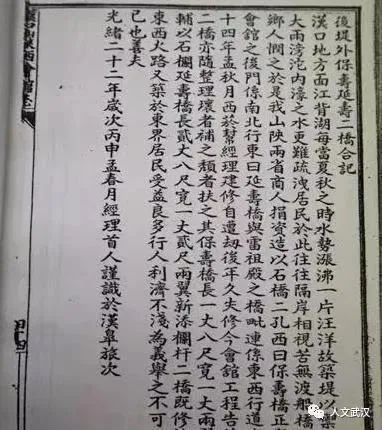 後堤外保壽延壽二橋合記
漢口地方面江背湖每當夏秋之時水勢漲沸一片汪洋故築堤以
大雨滂沱內濠之水更難疏洩居民於此往往隔岸相視苦無渡船橋
鄉人憫之於是我山陝兩省商人捐資造以石橋二孔西曰保壽橋正
會館之後門係南北行東曰延壽橋與雷祖殿之橋毗連係東西行道
十四年孟秋月西於幫經理建修自遭刼後年久失修今會館工程告
二橋亦隨整理壞者補之頹者扶之其保壽橋長一丈八尺寬一丈兩
輔以石欄延壽橋長貳丈八尺寬一丈貳尺兩翼新添欄杆二橋既修
東西火路又築於東界居民受益良多行人利濟不淺為義舉之不可
已也善夫
光緒二十二年歲次丙申孟春月經理首人謹識於漢臯旅次
人文武汉